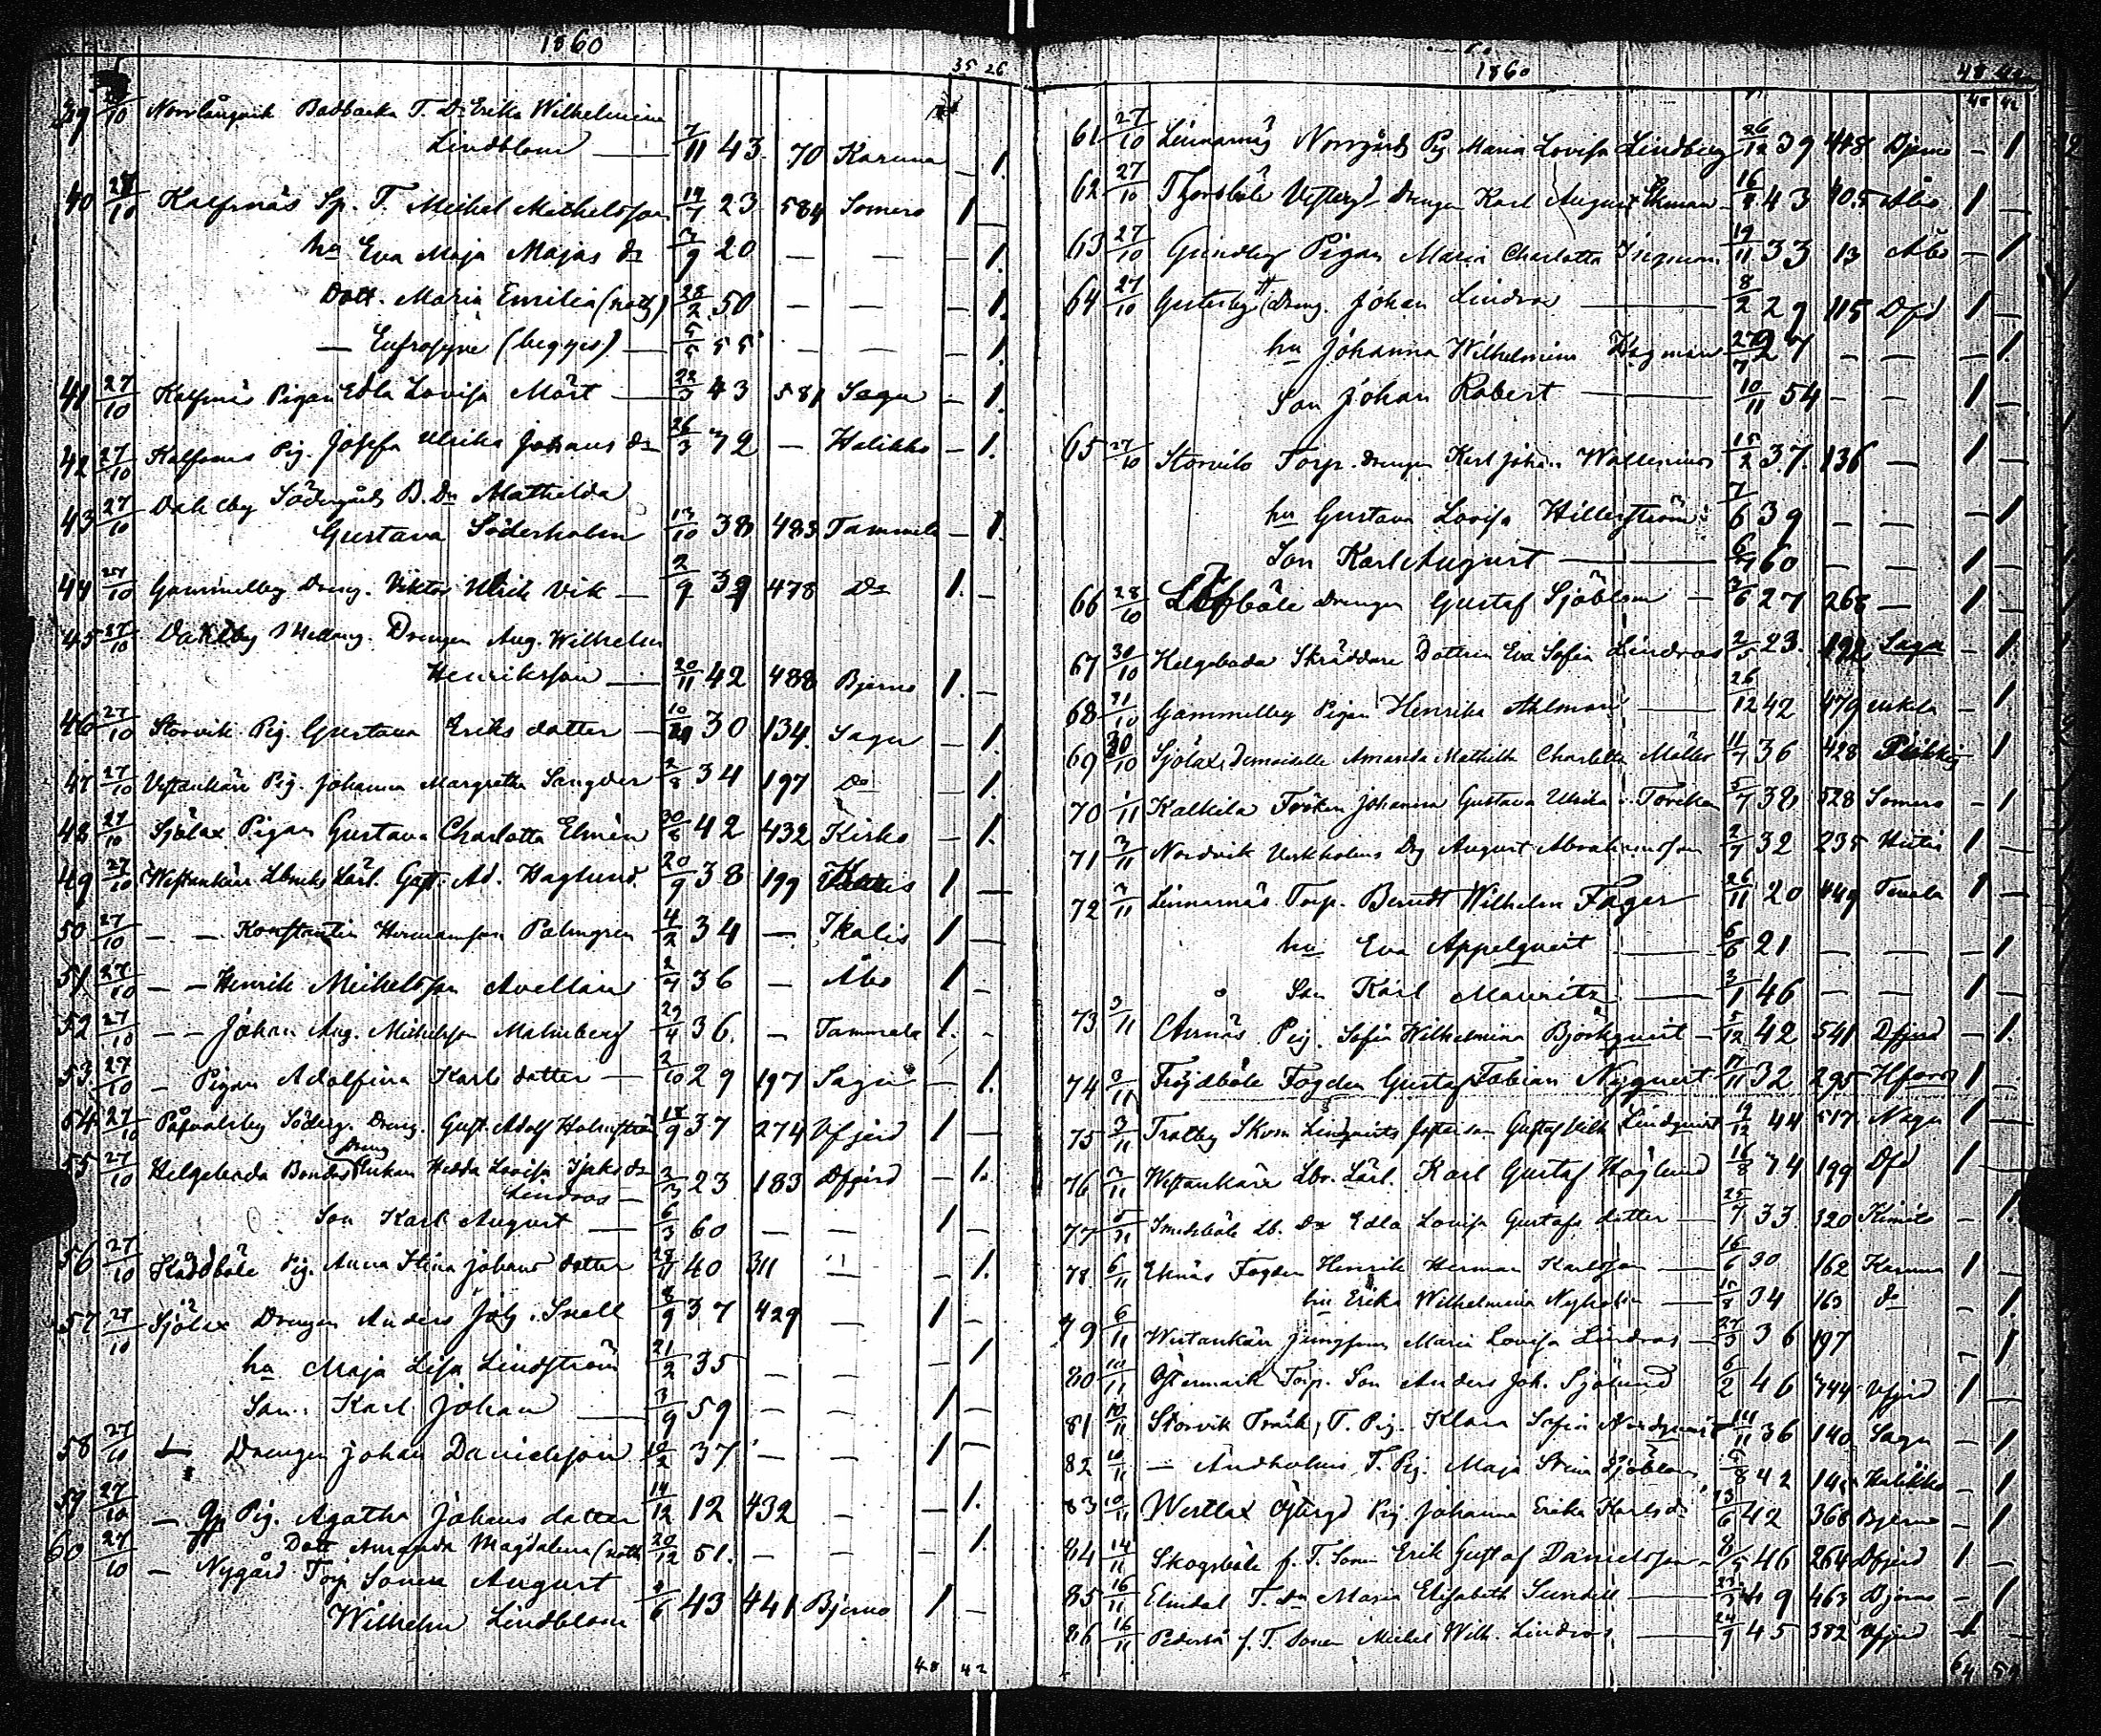 1860
35 26
39 /10 Norrlångvik Badbacka T. Dr Erika Wilhelmina
Lindblom — 7/11 43 70 Karuna — 1.
40 27/10 Kalfsnäs Sp. T. Michel Michelsson 14/7 23 584 Somero 1 —
hu Eva Maja Majas dr 9 20 — — — 1.
Dott. Maria Emilia 28/2 50 — — — 1.
— Eufrosyne — 55 — — — 1.
41 27/10 Kalfnäs Pigan Edla Lovisa Mört — 22/3 43 581 Sagu — 1.
42 27/10 Kalfsnäs Pig. Josefa Ulrika Johans dr 26/3 — Halikko — 1.
43 27/10 Dahlby Södergårds B. Dr Mathilda
Gustava Söderholm 13/10 38 483 Tammela — 1.
44 27/10 Gammelby Dreng. Viktor Ulrik Vik — 2/9 39 478 Do 1. —
45 27/10 Dahlby Drengen Aug. Wilhelm
Henriksson — 20/11 42 488 Bjerno 1. —
46 27/10 Storvik Pig. Gustava Eriks dotter — 10 30 134. Sagu — 1.
47 27/10 Vestankärr Pig. Johanna Margretha Sangder 2/8 34 197 Do — 1.
48 27/10 Sjölax Pigan Gustava Charlotta Elmén 30/8 42 432 Kisko — 1.
49 27/10 Westankärr Lbruks Lärl. Gust. Ad. Haglund 20/9 38 199 1 —
50 27/10 — — Konstantin Hermansson Palmgren 4/2 34 — Ikalis 1 —
51 27/10 — — Henrik Michelsson Avellan 2/7 36 — Åbo 1 —
52 27/10 — — Johan Aug. Michelsson Malmberg 29/4 36. — Tammela 1. —
53 27/10 — Pigan Adolfina Karls dotter — 2/10 29 197 Sagu — 1.
54 27/10 Påfvalsby Söderg. Dreng. Gust. Adolf Holmström 18/9 37 274 Vfjerd 1 —
55 27/10 Helgeboda Bondes Dreng Enkan Hedda Lovisa
Lindroos — 3 23 183 Dfjerd — 1.
Son Karl August — 6/3 60 — — 1 —
56 27/10 Skåddböle Pig. Anna Stina Johans dotter 40 311 — — 1.
57 27/10 Sjölax Drengen Anders Joh. Snell 8/9 37 429 — 1 —
hu Maja Lisa Lindström 21/2 35 — — — 1
Son Karl Johan — 3/9 59 — — 1 —
58 27/10 — Drengen Johan Danielsson /2 37 — — 1 —
59 27/10 — Pig. Agatha Johans dotter 14/12 12 432 — — 1.
Dott Amanda Magdalena 20/12 51. — — — 1.
60 27/10 — Nygård Torp Sonen August
Wilhelm Lindblom /6 43 441 Bjerno 1 —
48 42
1860
48 42
61 27/10 Linnarnäs Norrgårds Pig Maria Lovisa Lindberg 26/12 39 448 Bjerno — 1
62 27/10 Vesterg. Drengen Karl August Ekman 16 43 405 Åbo 1 —
63 27/10 Pigan Maria Charlotta 19/11 33 13 Åbo — 1
64 27/10 Gesterby Dreng. Johan Lindroos — 8/2 29 115 Dfd 1 —
hu Johanna Wilhelmina Hagman 27/7 27 — — — 1.
Son Johan Robert — 10/11 54 — — 1 —
65 27/10 Storvik Torp. Drengen Karl Johan 15/2 37. 136 — 1 —
hu Gustava Lovisa Hillerström 7/6 39 — — — 1
Son Karl August — 60 — — 1 —
66 28/10 Drengen Gustaf Sjöblom — 3/6 27 268 — 1 —
67 30/10 Helgeboda Skräddare Dottren Eva Sofia Lindroos 2/5 23. 192 Sagu — 1
68 31/10 Gammelby Pigan Henrika Ahlman — 26/12 42 479 — 1
69 /10 Sjölax Demoiselle Amanda Mathilda Charlotta Möller 11 36 428 — 1
70 1/11 Kalkila Johanna Gustava Ulrika 5/7 38 528 Somero — 1
71 3/11 Nordvik Dg August Abrahamsson 2/7 32 235 Hitis 1 —
72 3/11 Linnarnäs Torp. Berndt Wilhelm Fager 26/11 20 449 Tenala 1 —
hu Eva Appelqvist — 6/6 21 — — — 1
Son Karl Mauritz — 3/1 46 — — 1 —
73 3/11 Arnäs Pig. Sofia Wilhelmina Björkqvist — 5/12 42 541 Dfjerd — 1.
74 3/11 Fröjdböle Fogden Gustaf Fabian Nyqvist 17/11 32 295 Hfors 1 —
75 3/11 Tralby Skom. Lindqvists fosterson Gustaf Wilh Lindqvist /12 44 517. Nagu 1 —
76 3/11 Westankärr Lbr. Lärl. Karl Gustaf Höglund 16/8 199 Dfd 1 —
77 5/11 Smedsböle Lb. Dr Edla Lovisa Gustafs dotter — 25/7 33. 320 Kimito — 1.
78 6/11 Eknäs Fogden Henrik Herman Karlsson — 16/6 30 162 Karuna 1 —
hu Erika Wilhelmina Nyholm — 18/8 34 163 Do — 1.
79 6/11 Westankärr Jungfrun Maria Lovisa Lindroos — 27/3 36 197 — 1
80 10/11 Östermark Torp. Son Anders Joh. Sjölund 6/2 46 744 Vfjerd 1 —
81 10/11 Storvik Träsk, T. Pig. Klara Sofia Nordqvist /11 36 140 Sagu — 1
82 10/11 — T. Pig. Maja Stina Sjöblom 5/8 42 Halikko — 1
83 10/11 Westlax Pig Johanna Erika Karls dr 13/6 42 368 Bjerno — 1
84 14/11 Skogsböle f. T. Sonen Erik Gustaf Danielsson — 8/5 46 264 Dfjerd 1 —
85 16/11 Elmdal T. dn Maria Elisabeth Sundell — 49 463 Bjerno — 1
86 16/11 f. T. Sonen Michel Wilh. Lindroos — 24/9 45 382 Vfjerd 1 —
64